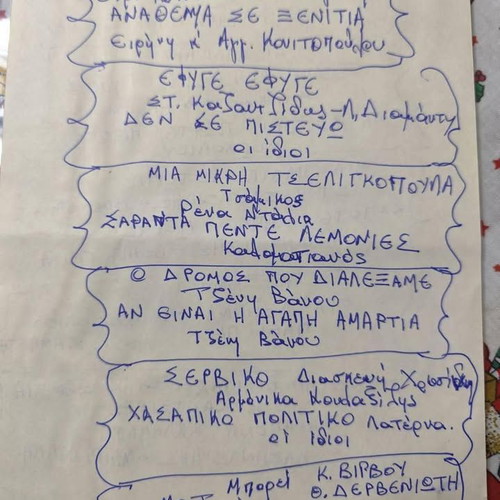 ΑΝΑΘΕΜΑ ΣΕ ΞΕΝΙΤΙΑ
Ειρήνη κ' Αγγ. Κονιτοπούλου
ΕΦΥΓΕ ΕΦΥΓΕ
ΣΤ. Καζαντζίδας - Λ, Διαμάντη
ΔΕΝ ΣΕ ΠΙΣΤΕΥΩ
οι ίδιοι
ΜΙΑ ΜΙΚΡΗ ΤΣΕΛΙΓΚΟΠΟΥΛΑ
Τσάμικος
Ρένα Ντάλια
ΣΑΡΑΝΤΑ ΠΕΝΤΕ ΛΕΜΟΝΙΕΣ
Καλαματιανός
Ο ΔΡΟΜΟΣ ΠΟΥ ΔΙΑΛΕΞΑΜΕ
Τζένη Βάνου
ΑΝ ΕΙΝΑΙ Η ΑΓΑΠΗ ΑΜΑΡΤΙΑ
Τζένη Βάνου
ΣΕΡΒΙΚΟ Διασκευή
Αρμόνικα
ΧΑΣΑΠΙΚΟ ΠΟΛΙΤΙΚΟ Λατέρνα.
οι ίδιοι
Μπορεί Κ. ΒΙΡΒΟΥ
Θ. ΔΕΡΒΕΝΙΩΤΗ